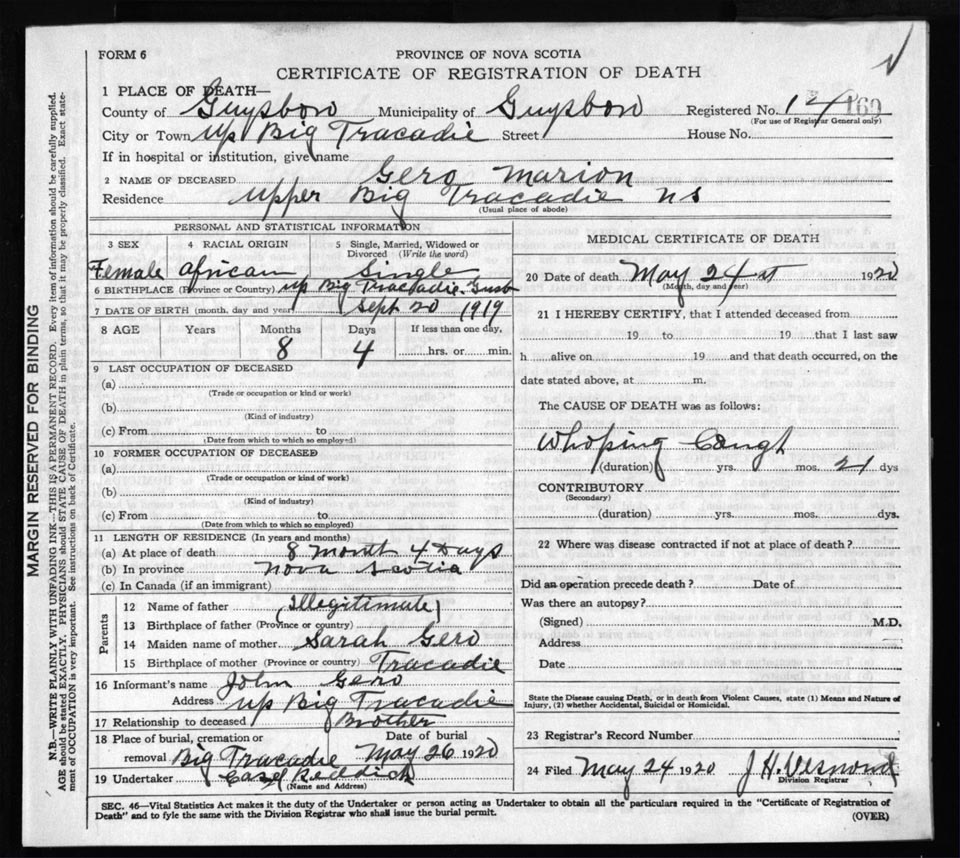 FORM 6
PROVINCE OF NOVA SCOTIA
CERTIFICATE OF REGISTRATION OF DEATH
1 PLACE OF DEATH—
County of Guysboro Municipality of Guysboro Registered No. 124 169
(For use of Registrar General only)
City or Town Up Big Tracadie Street House No.
If in hospital or institution, give name
2 NAME OF DECEASED Gero Marion
Residence Upper Big Tracadie NS
(Usual place of abode)
PERSONAL AND STATISTICAL INFORMATION
3 SEX 4 RACIAL ORIGIN 5 Single, Married, Widowed or Divorced (Write the word)
Female African Single
6 BIRTHPLACE (Province or Country) Up Big Tracadie
7 DATE OF BIRTH (month, day and year) Sept 20 1919
8 AGE Years Months Days If less than one day,
8 4 hrs. or min.
9 LAST OCCUPATION OF DECEASED
(a)
(Trade or occupation or kind or work)
(b)
(Kind of industry)
(c) From to
(Date from which to which so employed)
10 FORMER OCCUPATION OF DECEASED
(a)
(Trade or occupation or kind of work)
(b)
(Kind of industry)
(c) From to
(Date from which to which so employed)
11 LENGTH OF RESIDENCE (In years and months)
(a) At place of death 8 Month 4 Days
(b) In province Nova Scotia
(c) In Canada (if an immigrant)
Parents
12 Name of father (Illegitimate)
13 Birthplace of father (Province or country)
14 Maiden name of mother Sarah Gero
15 Birthplace of mother (Province or country) Tracadie
16 Informant's name John Gero
Address Up Big Tracadie
17 Relationship to deceased Brother
18 Place of burial, cremation or removal Big Tracadie Date of burial May 26 1920
19 Undertaker Reddick
(Name and Address)
MEDICAL CERTIFICATE OF DEATH
20 Date of death May 24 st 1920
(Month, day and year)
21 I HEREBY CERTIFY, that I attended deceased from
19 to 19 that I last saw
h alive on 19 and that death occurred, on the
date stated above, at m.
The CAUSE OF DEATH was as follows:
Whoping Cough
(duration) yrs. mos. 21 dys
CONTRIBUTORY
(Secondary)
(duration) yrs. mos. dys.
22 Where was disease contracted if not at place of death?
Did an operation precede death? Date of
Was there an autopsy?
(Signed) M.D.
Address
Date
State the Disease causing Death, or in death from Violent Causes, state (1) Means and Nature of
Injury, (2) whether Accidental, Suicidal or Homicidal.
23 Registrar's Record Number
24 Filed May 24 1920 J H
Division Registrar
SEC. 46—Vital Statistics Act makes it the duty of the Undertaker or person acting as Undertaker to obtain all the particulars required in the "Certificate of Registration of
Death" and to fyle the same with the Division Registrar who shall issue the burial permit.
(OVER)
MARGIN RESERVED FOR BINDING
N.B.—WRITE PLAINLY WITH UNFADING INK—THIS IS A PERMANENT RECORD. Every item of information should be carefully supplied.
AGE should be stated EXACTLY. PHYSICIANS should STATE CAUSE OF DEATH in plain terms, so that it may be properly classified. Exact state-
ment of OCCUPATION is very important. See instructions on back of Certificate.